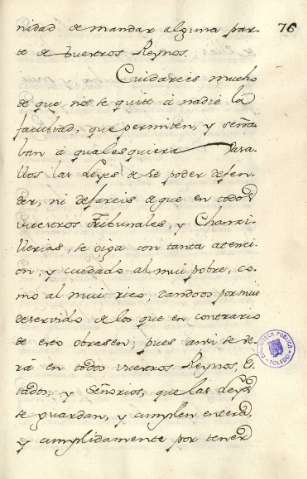 nidad de mandar alguna par- 76
te de vuestros Reynos.
Cuidareis mucho
de que, no se quite á nadie la
facultad, que permiten, y seña
lan á qualesquiera Vasa
llos las Leyes de se poder defen
der, ni dejareis de que en todos
vuestros Tribunales, y Chanzi
llerias, se oiga con tanta atenci
on, y cuidado al mui pobre, co
mo al mui rico, dandoos por mui
deservido de los que en contrario
de esto obrasen; pues assi se ve
rá en todos vuestros Reynos, Es
tados, y Señorios, que las Leyes
se guardan, y cumplen entera,
y cumplidamente por tener
BIBLIOTECA PUBLICA
TOLEDO